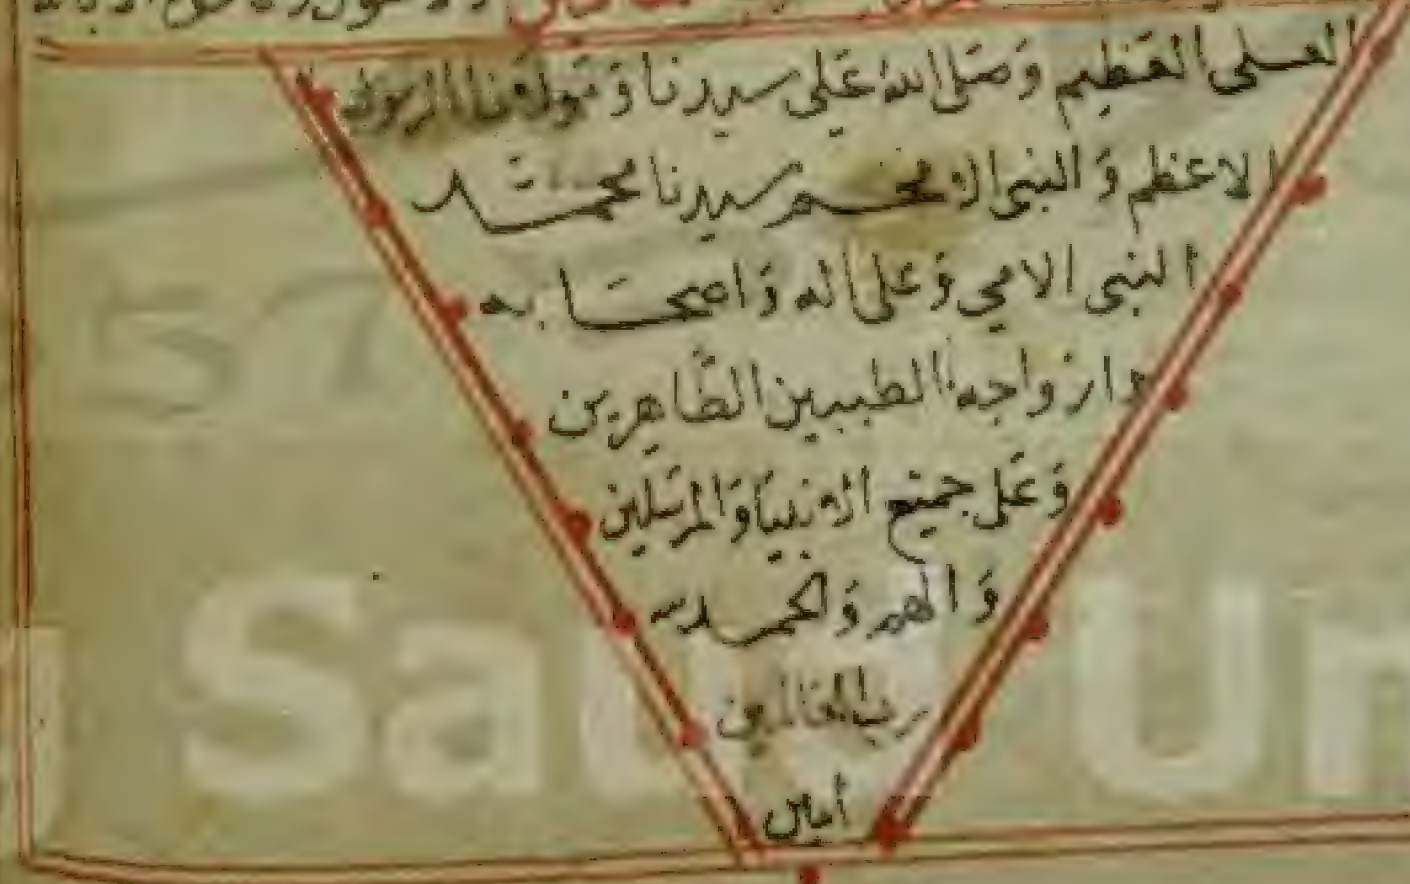 العلى العظيم وصلى الله على سيدنا ومولانا الرسول
الاعظم والنبى الافخم سيدنا محمد
النبى الامي وعلى اله واصحابه
وازواجه الطيبين الطاهرين
وعلى جميع الانبيا والمرسلين
والهم والحمد لله
رب العالمين
أمين
Sau Un